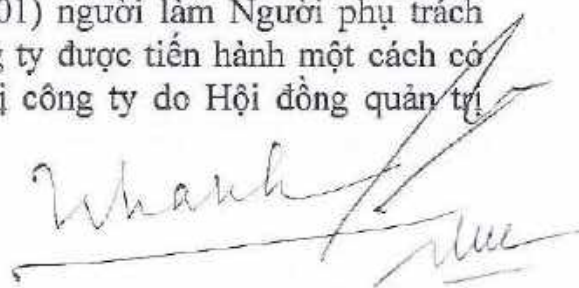 01) người làm Người phụ trách
g ty được tiến hành một cách có
ị công ty do Hội đồng quản trị